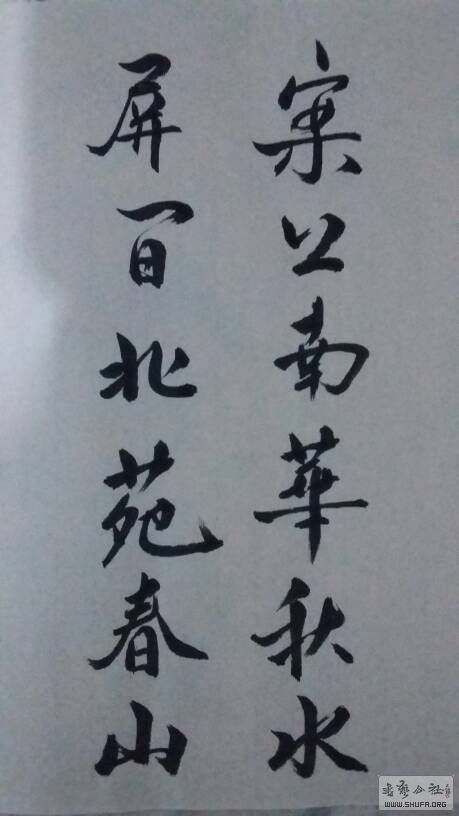 案上南華秋水
屏間北苑春山
書藝公社
WWW.SHUFA.ORG